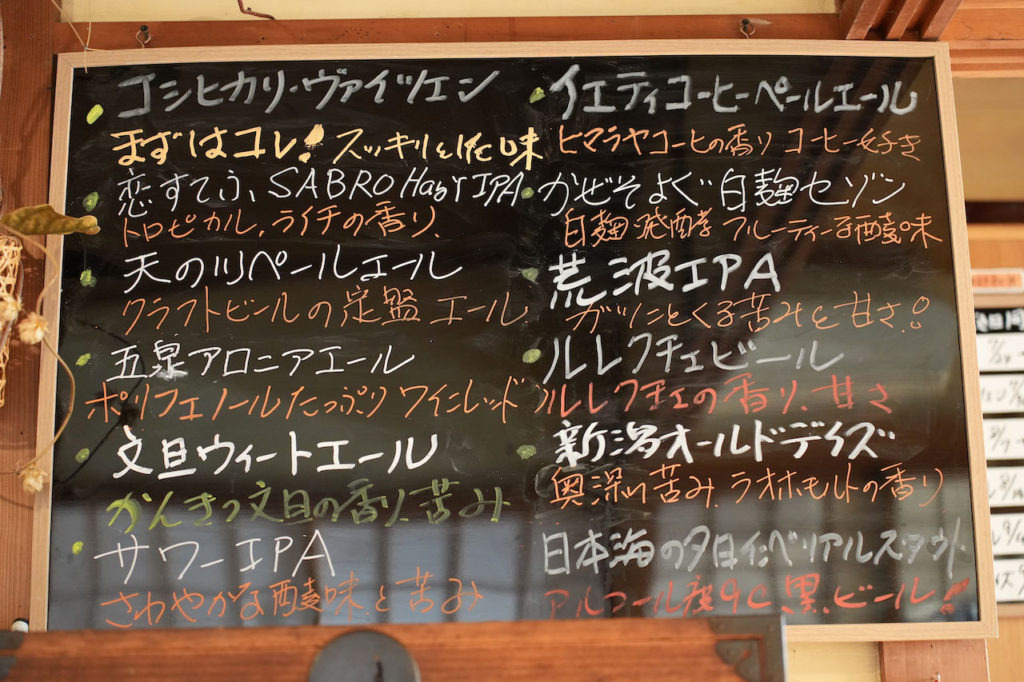 コシヒカリ・ヴァイツェン
まずはコレ！スッキリした味
恋すてふ、SABRO Hazy IPA
トロピカル、ライチの香り、
天の川ペールエール
クラフトビールの定盤エール
五泉アロニアエール
ポリフェノールたっぷりワインレッド
文旦ウィートエール
かんきつ文旦の香り、苦み
サワーIPA
さわやかな酸味と苦み
イエティコーヒーペールエール
ヒマラヤコーヒーの香り コーヒー好き
かぜそよぐ 白麹セゾン
白麹発酵 フルーティーな酸味
荒波IPA
ガツンとくる苦みと甘さ!
ルレクチェビール
ルレクチェの香り、甘さ
新潟オールドデイズ
奥深い苦み ラオホモルトの香り
日本海の夕日インペリアルスタウト
アルコール度9%、黒、ビール！